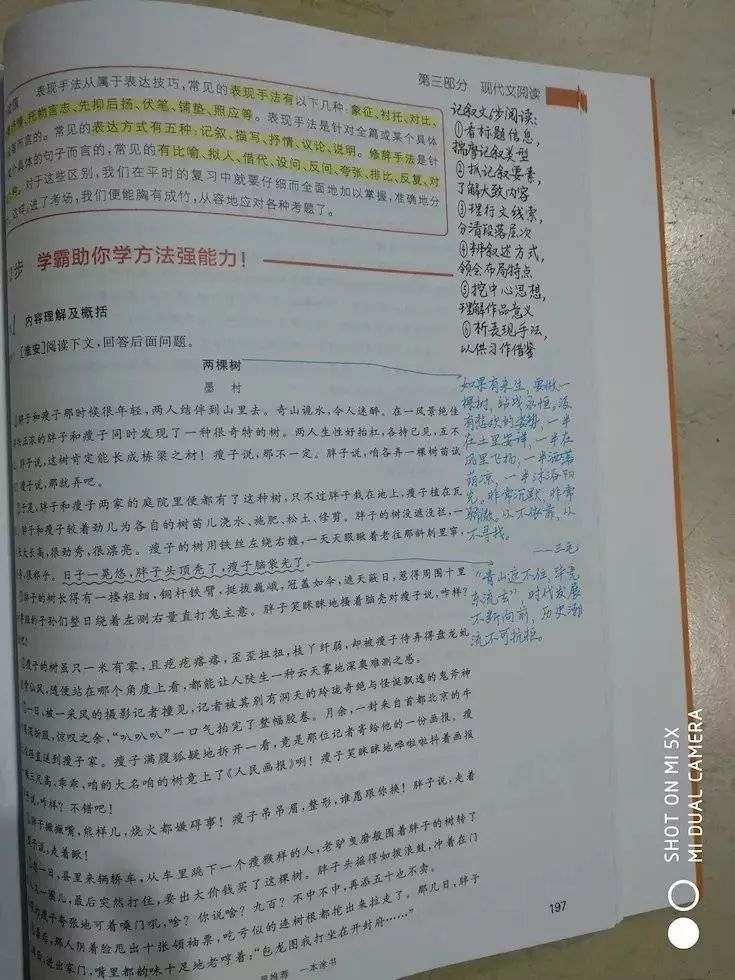 第三部分 现代文阅读
表现手法从属于表达技巧,常见的表现手法有以下几种:象征、衬托、对比、
托物言志、先抑后扬、伏笔、铺垫、照应等。表现手法是针对全篇或某个具体
而言的。常见的表达方式有五种:记叙、描写、抒情、议论、说明。修辞手法是针
个具体的句子而言的,常见的有比喻、拟人、借代、设问、反问、夸张、排比、反复、对
对于这些区别,我们在平时的复习中就要仔细而全面地加以掌握,准确地分
这样,进了考场,我们便能胸有成竹,从容地应对各种考题了。
步 学霸助你学方法强能力!
1 内容理解及概括
[淮安]阅读下文,回答后面问题。
两棵树
墨 村
胖子和瘦子那时候很年轻,两人结伴到山里去。奇山诡水,令人迷醉。在一风景绝佳
正浓的胖子和瘦子同时发现了一种很奇特的树。两人生性好抬杠,各持己见,互不
胖子说,这树肯定能长成栋梁之材!瘦子说,那不一定。胖子说,咱各弄一棵树苗试
瘦子说,那就弄吧。
于是,胖子和瘦子两家的庭院里便都有了这种树,只不过胖子栽在地上,瘦子植在瓦
胖子和瘦子较着劲儿为各自的树苗儿浇水、施肥、松土、修剪。胖子的树没遮没拦,一
长大长高,很劲秀,很漂亮。瘦子的树用铁丝左绕右缠,一天天眼瞅着老往那斜刺里窜,
很邪乎。日子一晃悠,胖子头顶秃了,瘦子脑袋光了。
胖子的树长得有一搂粗细,铜杆铁臂,挺拔巍峨,冠盖如伞,遮天蔽日,惹得周围十里
的子孙们整日绕着左测右量直打鬼主意。胖子笑眯眯地搔着脑壳对瘦子说,咋样?
吧!
瘦子的树虽只一米有零,且疙疙瘩瘩,歪歪扭扭,枝丫纤弱,却被瘦子侍弄得盘龙虬
仙风,随便站在哪个角度上看,都能让人陡生一种云天雾地深奥难测之感。
一日,被一采风的摄影记者撞见,记者被其别有洞天的玲珑奇绝与怪诞飘逸的鬼斧神
折服,惊叹之余,“叭叭叭”一口气拍完了整幅胶卷。月余,一封来自首都北京的牛
直送到瘦子家。瘦子满腹狐疑地拆开一看,竟是那位记者寄给他的一份画报。瘦
三尺高,乖乖,咱的大名咱的树竟上了《人民画报》咧!瘦子笑眯眯地哗啦啦抖着画报
说,咋样?不错吧!
胖子撇撇嘴,熊样儿,烧火都嫌碍事!瘦子吊吊眉,整形,谁愿跟你换!胖子说,走着
子说,走着瞅!
一日,县里来辆轿车,从车里跳下一个瘦猴样的人,老驴曳磨般围着胖子的树转了
又一圈儿,最后突然打住,要出大价钱买了这棵树。胖子头摇得如拨浪鼓,冲着在门
的瘦子夸张地可着嗓门吼,啥?你说啥?九百?不中不中,再添五十也不卖。
最后,那人阴着脸甩出十张领袖票,吃亏似的连树根都挖出来拉走了。那几日,胖子
进出家门,嘴里都韵味十足地老哼着:“包龙图我打坐在开封府……”
推荐 一本涂书
197
记叙文6步阅读:
①看标题信息,
揣摩记叙类型
②抓记叙要素,
了解大致内容
③理行文线索,
分清段落层次
④辨叙述方式,
领会布局特点
⑤挖中心思想,
理解作品意义
⑥析表现手法,
以供习作借鉴
如果有来生,要做一
棵树,站成永恒。没
有悲欢的姿势,一半
在土里安详,一半在
风里飞扬,一半洒落
荫凉,一半沐浴阳
光。非常沉默、非常
骄傲。从不依靠,从
不寻找。
——三毛
“青山遮不住,毕竟
东流去”,时代发展
不断向前,历史潮
流不可抗拒。
SHOT ON MI 5X
MI DUAL CAMERA